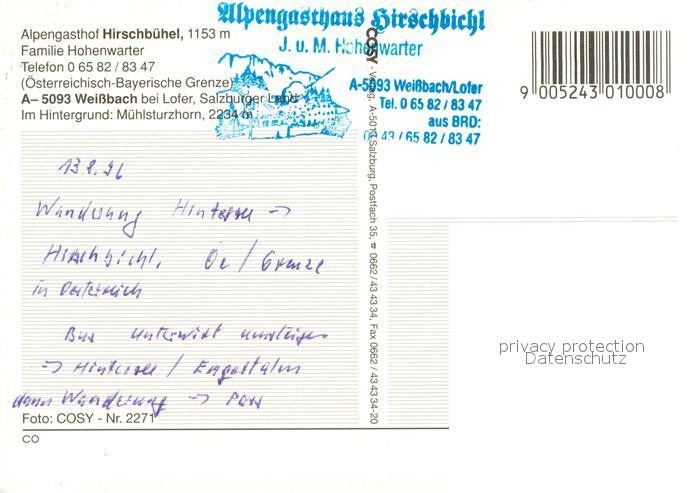 Alpengasthof Hirschbühel, 1153 m
Familie Hohenwarter
Telefon 0 65 82 / 83 47
(Österreichisch-Bayerische Grenze)
A– 5093 Weißbach bei Lofer, Salzburger Land
Im Hintergrund: Mühlsturzhorn, 2234 m
Alpengasthaus Hirschbichl
J. u. M. Hohenwarter
A-5093 Weißbach/Lofer
Tel. 0 65 82 / 83 47
aus BRD:
00 43 / 65 82 / 83 47
COSY - Verlag, A-5013 Salzburg, Postfach 35, ☎ 0662/43 43 34, Fax 0662/43 43 34-20
9 005243 010008
13.8.96
Wanderung Hintersee ->
Hirschbichl, Oe / Grenze
in Oesterreich
Bus Unterwirt umsteigen
-> Hintersee / Engertalm
dann Wanderung -> Pass
Foto: COSY - Nr. 2271
CO
privacy protection
Datenschutz